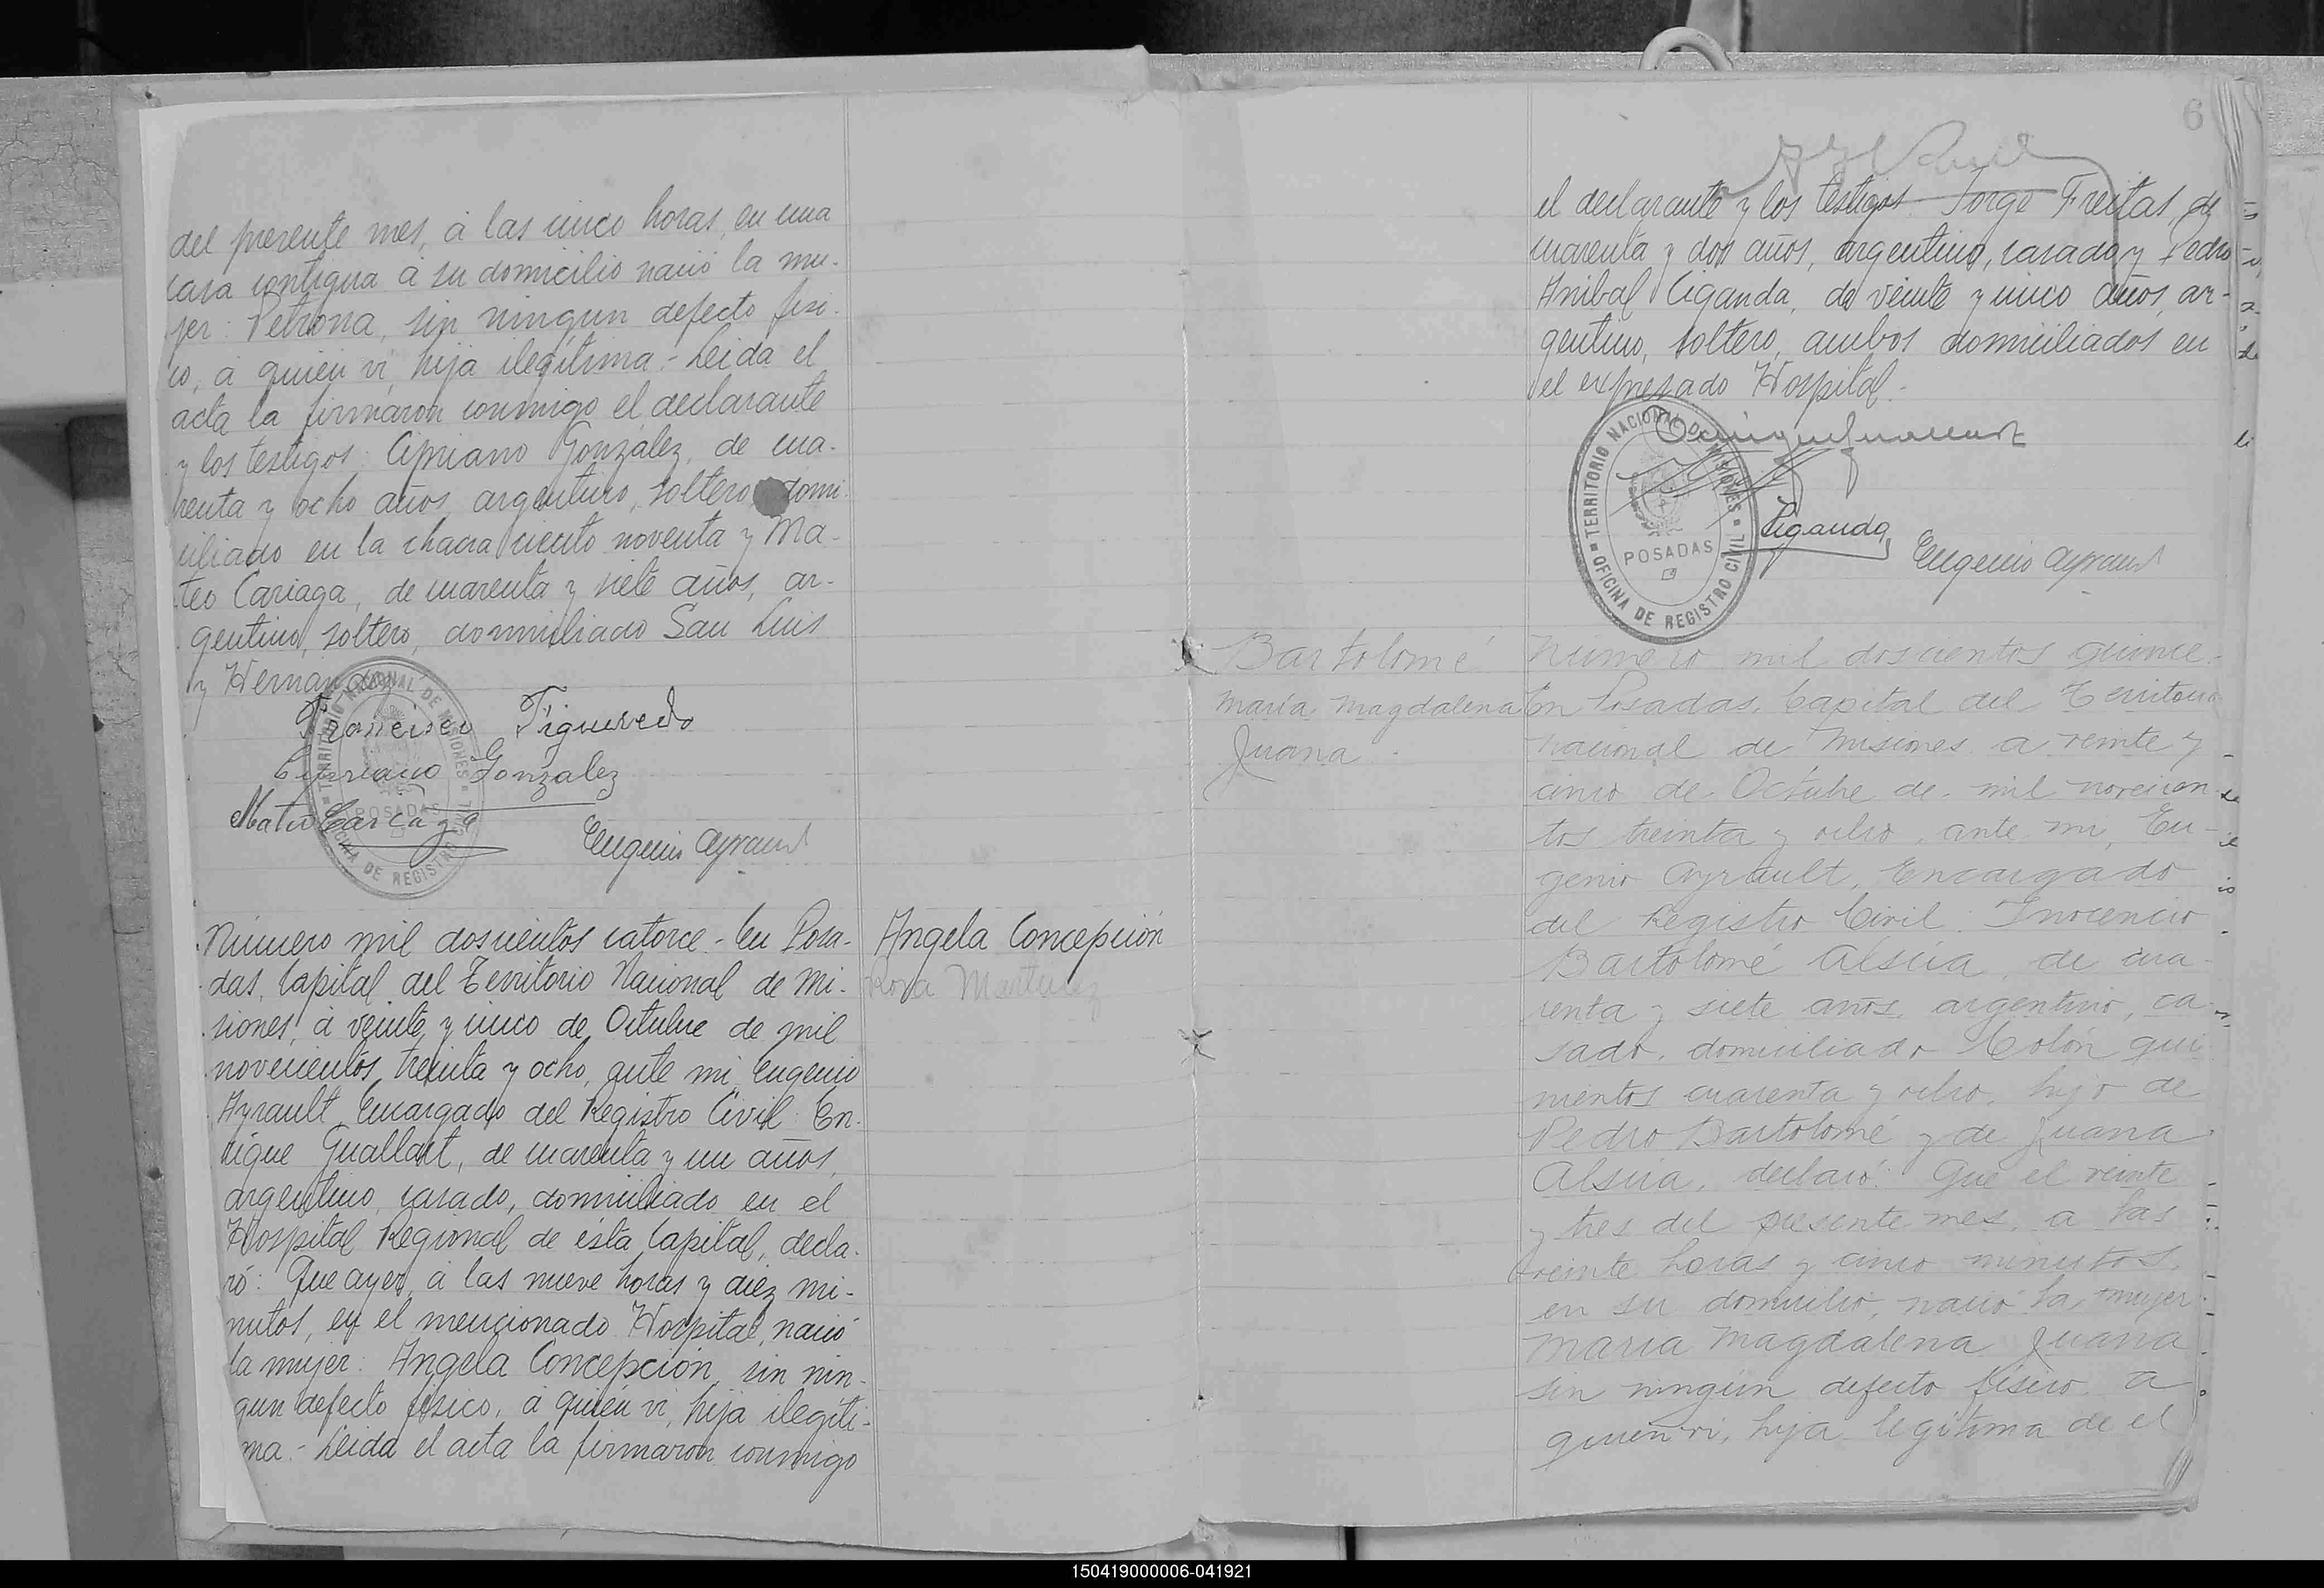 del presente mes, á las cinco horas, en una
casa contigua á su domicilio nació la mu-
jer: Petrona, sin ningun defecto fisi-
co, á quien vi, hija ilegítima.- Leida el
acta la firmaron conmigo el declarante
y los testigos: Cipriano González, de cua-
renta y ocho años, argentino, soltero, domi-
ciliado en la chacra ciento noventa y Ma-
teo Cariaga, de cuarenta y siete años, ar-
gentino, soltero, domiciliado San Luis
y Hernandez
Francisco Figueredo
Cipriano Gonzalez
Mateo Carcaga
Eugenio Ayrault
TERRITORIO NACIONAL DE MISIONES
POSADAS
OFICINA DE REGISTRO CIVIL
Angela Concepción
Rosa Martinez
Número mil doscientos catorce.- En Posa-
das, Capital del Territorio Nacional de Mi-
siones, á veinte y cinco de Octubre de mil
novecientos treinta y ocho, ante mi, Eugenio
Ayrault, Encargado del Registro Civil: En-
rique Guallart, de cuarenta y un años,
argentino, casado, domiciliado en el
Hospital Regional de ésta Capital, decla-
ró: Que ayer, á las nueve horas y diez mi-
nutos, en el mencionado Hospital, nació
la mujer: Angela Concepción, sin nin-
gun defecto fisico, á quien vi, hija ilegíti-
ma.- Leida el acta la firmaron conmigo
6
el declarante y los testigos: Jorge Freitas, de
cuarenta y dos años, argentino, casado y Pedro
Anibal Ciganda, de veinte y cinco años, ar-
gentino, soltero, ambos domiciliados en
el expresado Hospital.-
Enrique Guallart
Ciganda
Eugenio Ayrault
TERRITORIO NACIONAL DE MISIONES
POSADAS
OFICINA DE REGISTRO CIVIL
Bartolomé
María Magdalena
Juana
Número mil doscientos quince.
En Posadas, Capital del Territorio
Nacional de Misiones a veinte y
cinco de Octubre de mil novecien-
tos treinta y ocho, ante mi, Eu-
genio Ayrault, Encargado
del Registro Civil. Inocencio
Bartolomé Alsúa, de cua-
renta y siete años, argentino, ca-
sado, domiciliado Colón qui-
nientos cuarenta y ocho, hijo de
Pedro Bartolomé y de Juana
Alsúa, declaró: Que el veinte
y tres del presente mes, a las
veinte horas y cinco minutos,
en su domicilio, nació la mujer
Maria Magdalena Juana
sin ningún defecto físico a
quien vi, hija legítima de el
150419000006-041921